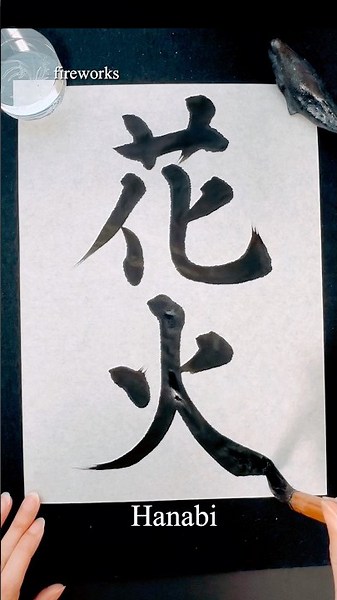 fireworks
花
火
Hanabi